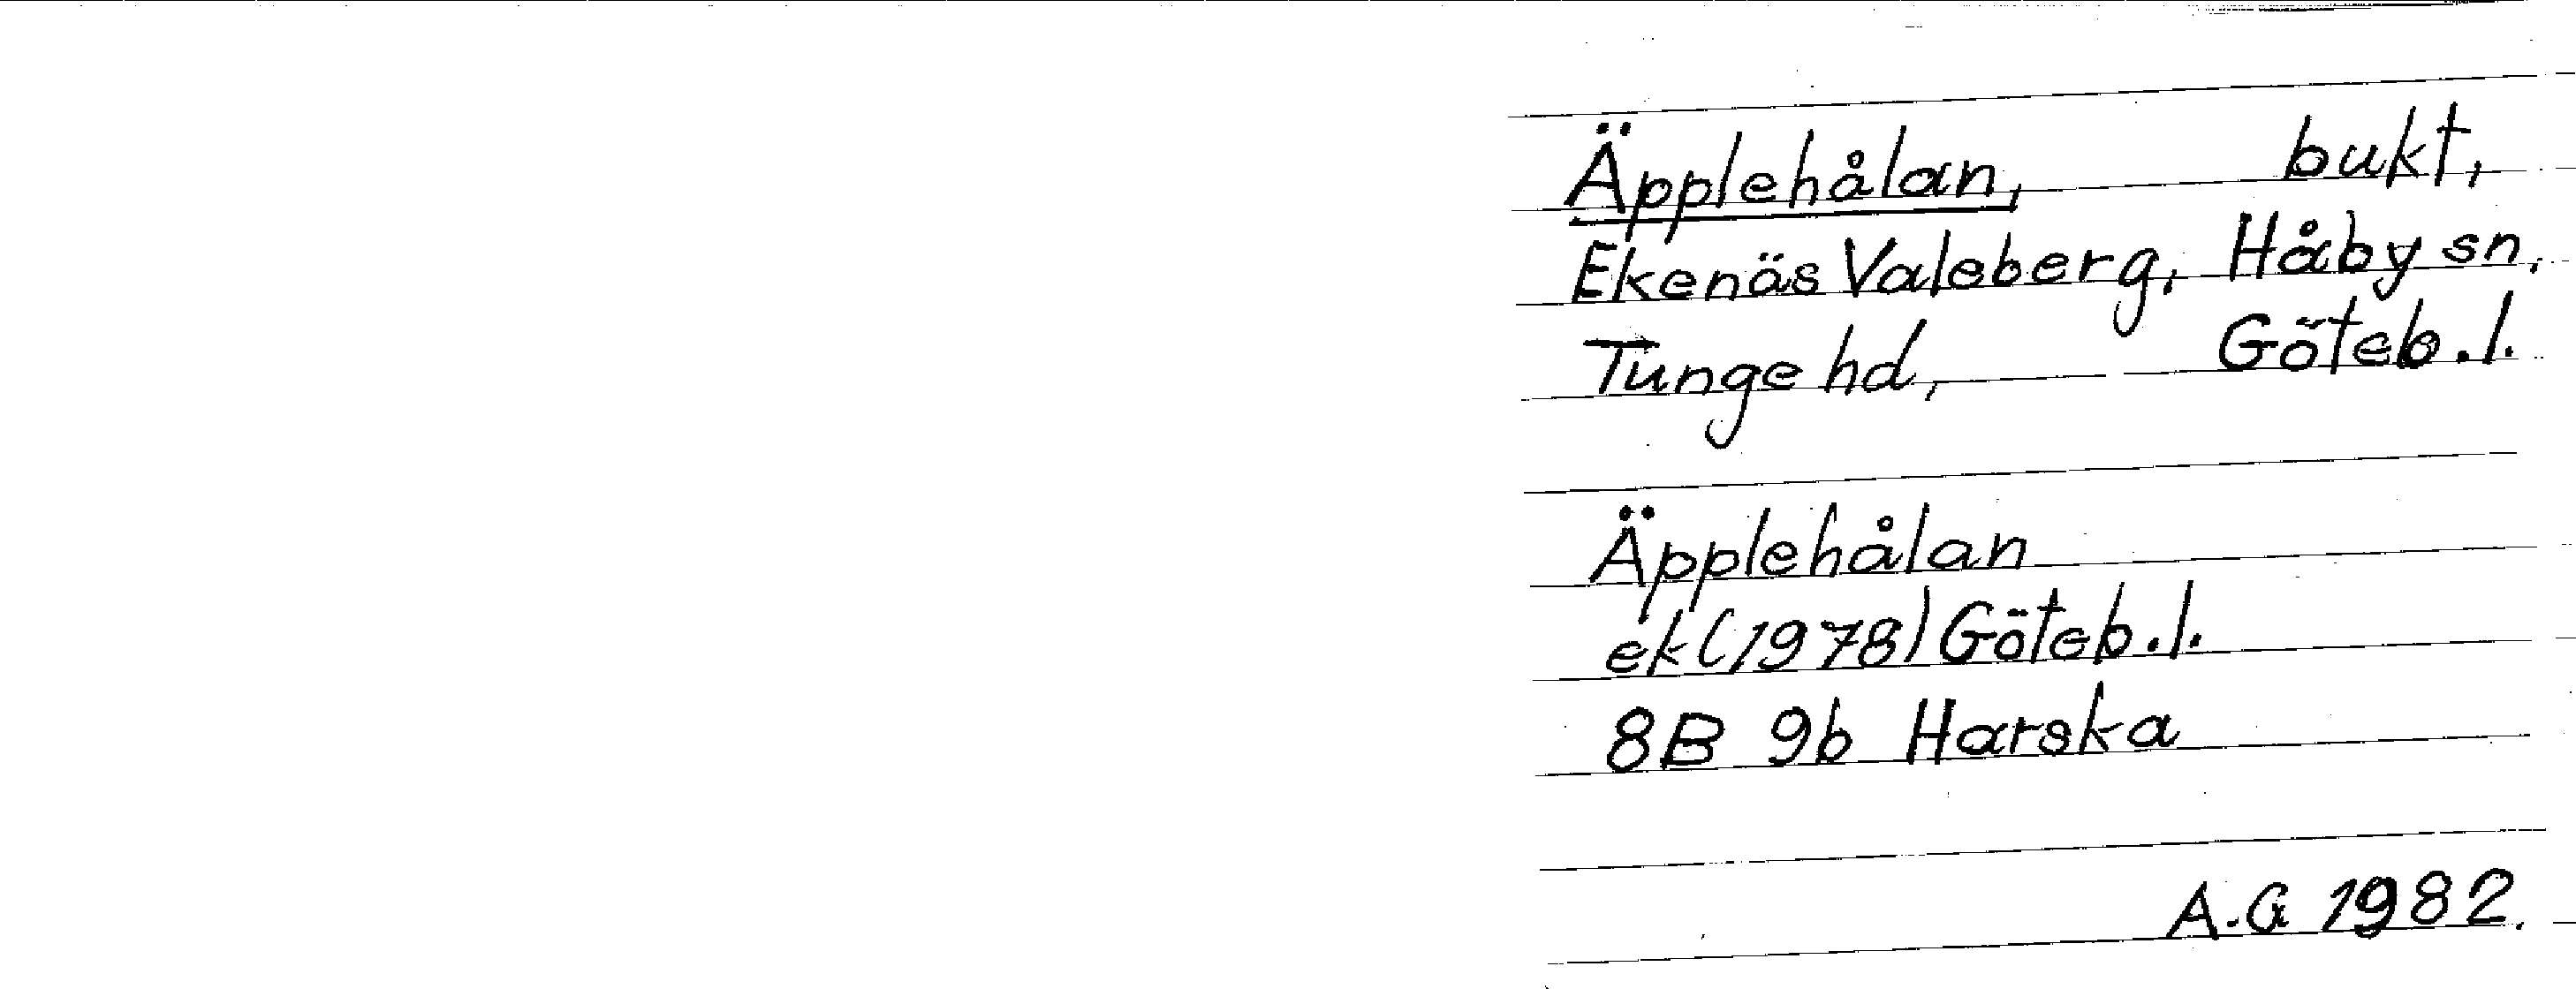 Äpplehålan, bukt,
Ekenäs Valeberg, Håby sn,
Tunge hd, Göteb.l.
Äpplehålan
ek (1978) Göteb.l.
8B 9b Harska
A.G 1982.